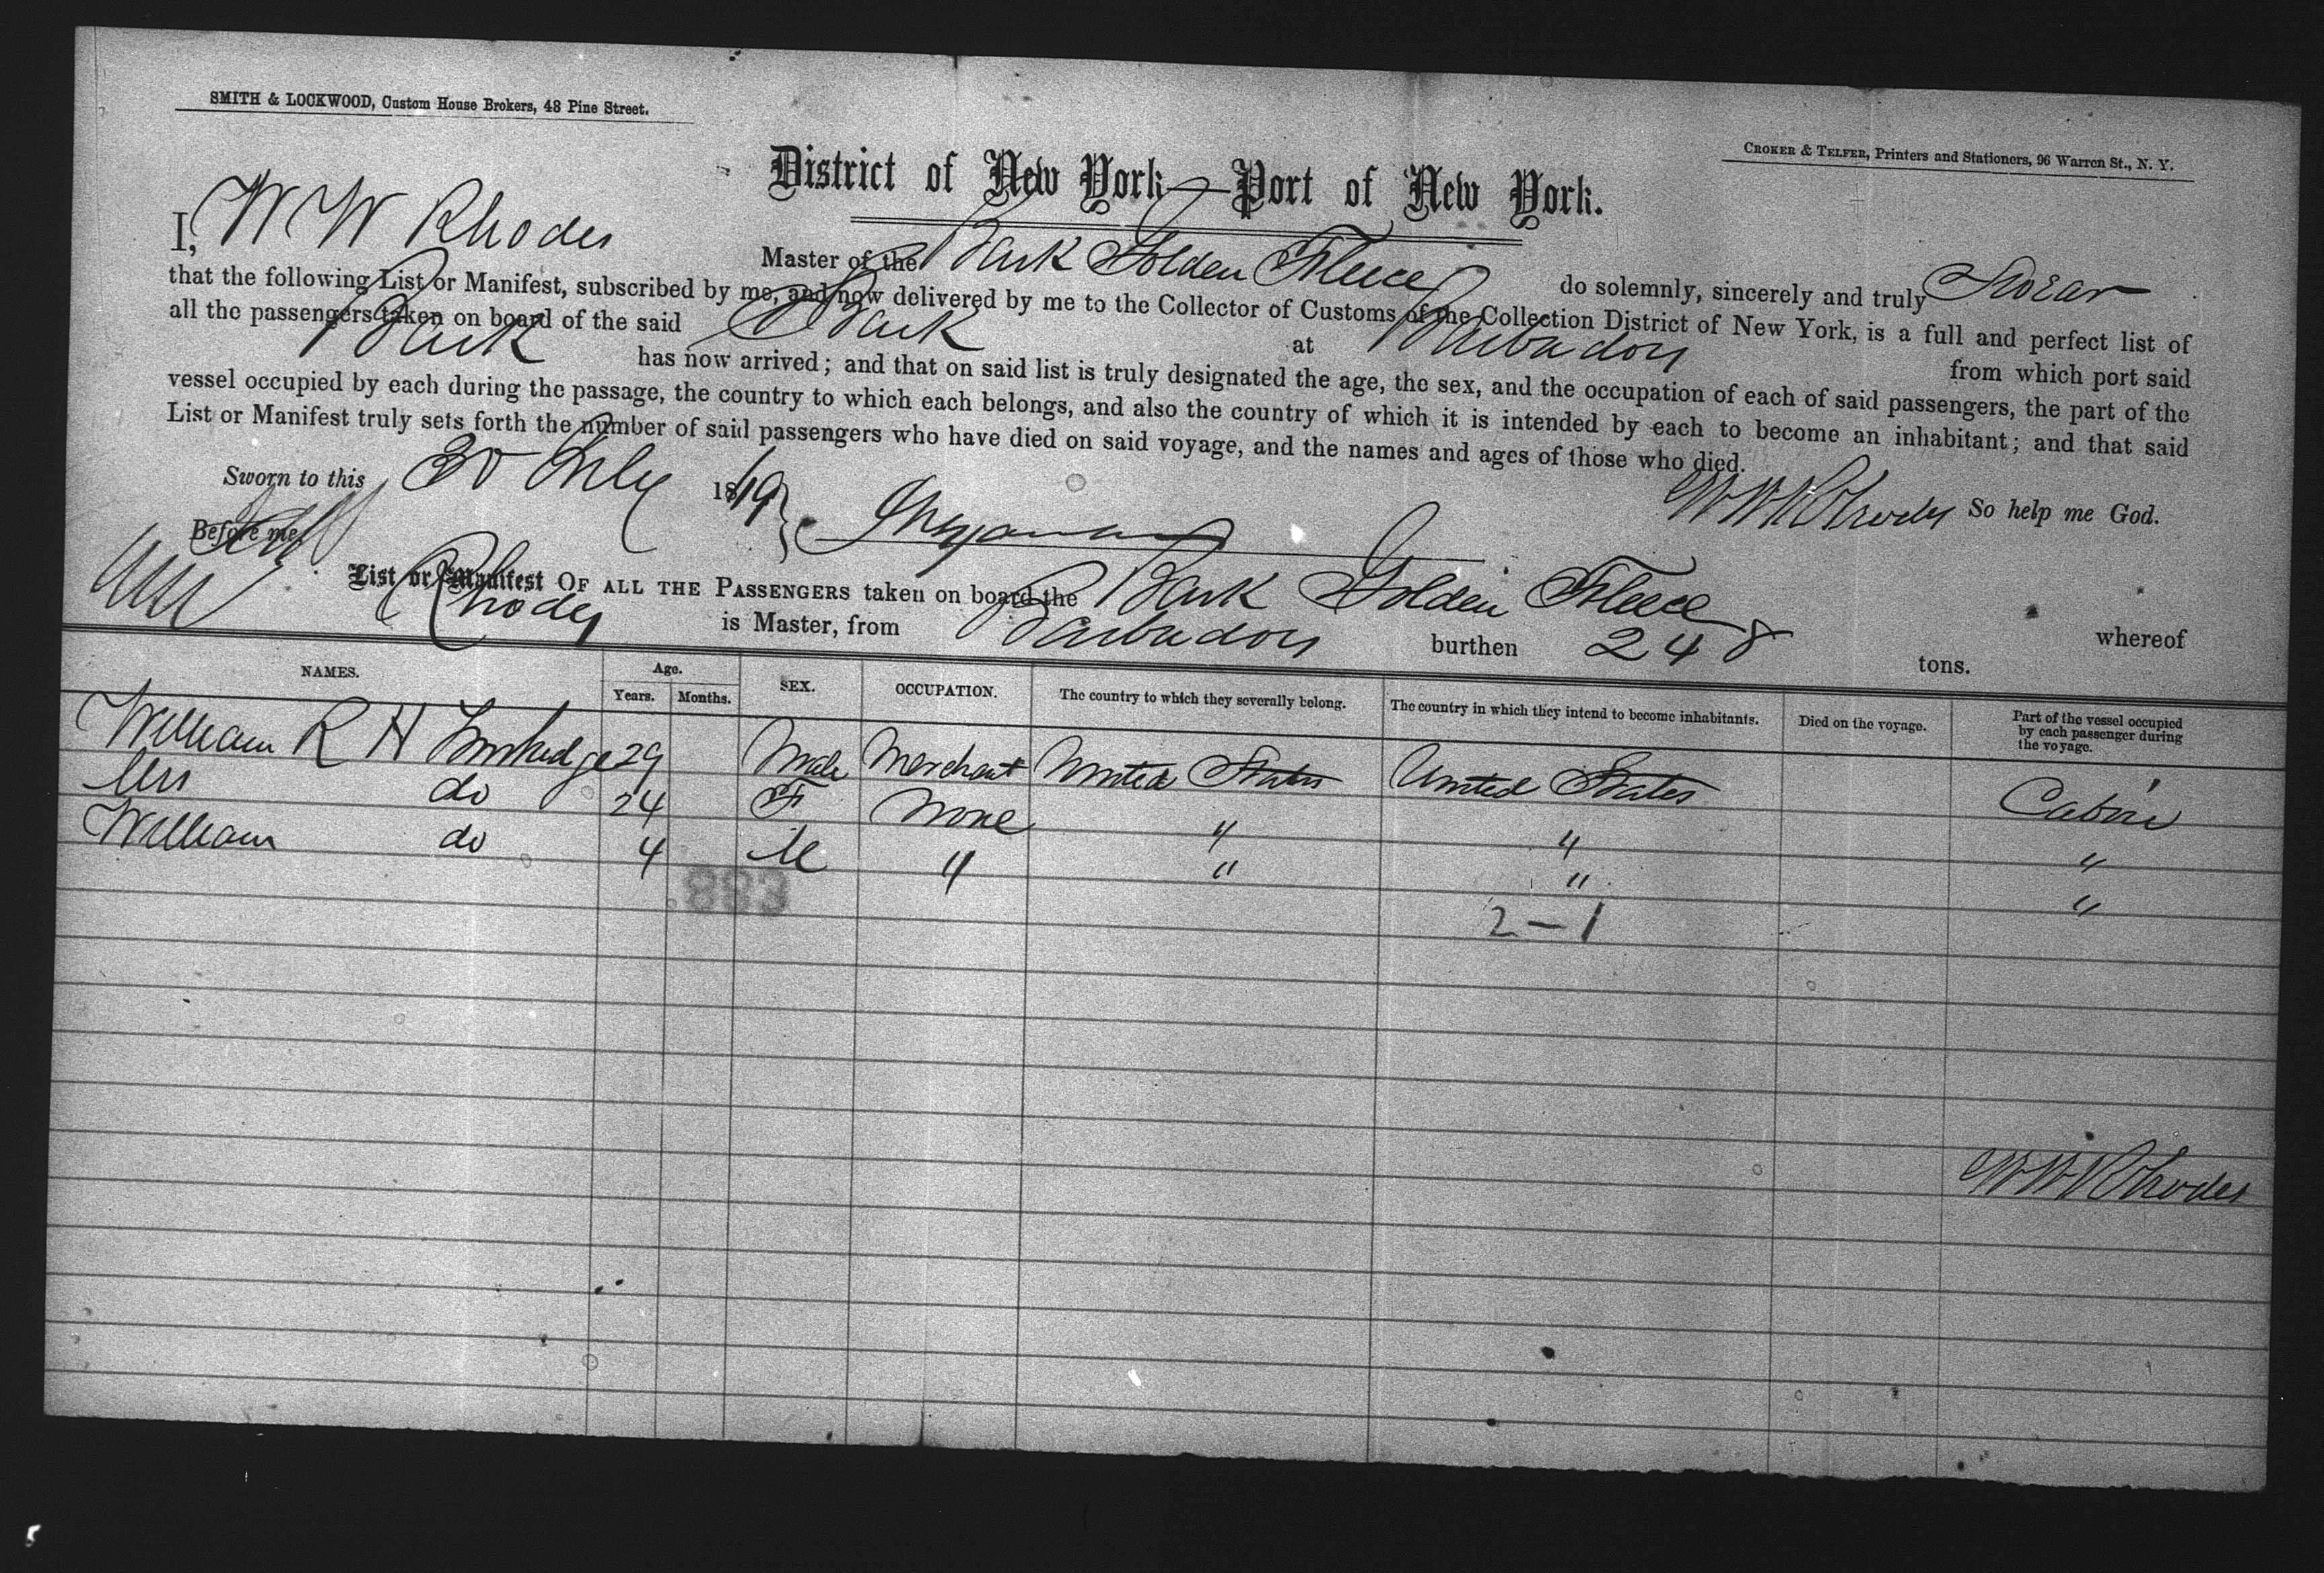 SMITH & LOCKWOOD, Custom House Brokers, 48 Pine Street.
CROKER & TELFER, Printers and Stationers, 96 Warren St., N. Y.
District of New York—Port of New York.
I, W W Rhodes Master of the Bark Golden Fleece do solemnly, sincerely and truly Swear
that the following List or Manifest, subscribed by me, and now delivered by me to the Collector of Customs of the Collection District of New York, is a full and perfect list of
all the passengers taken on board of the said Bark at Barbados from which port said
Bark has now arrived; and that on said list is truly designated the age, the sex, and the occupation of each of said passengers, the part of the
vessel occupied by each during the passage, the country to which each belongs, and also the country of which it is intended by each to become an inhabitant; and that said
List or Manifest truly sets forth the number of said passengers who have died on said voyage, and the names and ages of those who died.
Sworn to this 30 July 1879 W W Rhodes So help me God.
Before me
List or Manifest OF ALL THE PASSENGERS taken on board the Bark Golden Fleece whereof
Rhodes is Master, from Barbados burthen 248 tons.
NAMES. Age. Years. Months. SEX. OCCUPATION. The country to which they severally belong. The country in which they intend to become inhabitants. Died on the voyage. Part of the vessel occupied by each passenger during the voyage.
William R H 29 Male Merchant United States United States Cabin
Mrs do 24 F None " " "
William do 4 M " " " "
883
2 - 1
W W Rhodes